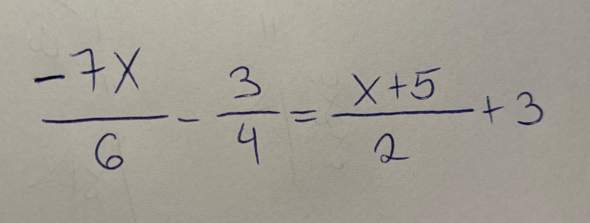 -7x/6 - 3/4 = x+5/2 + 3